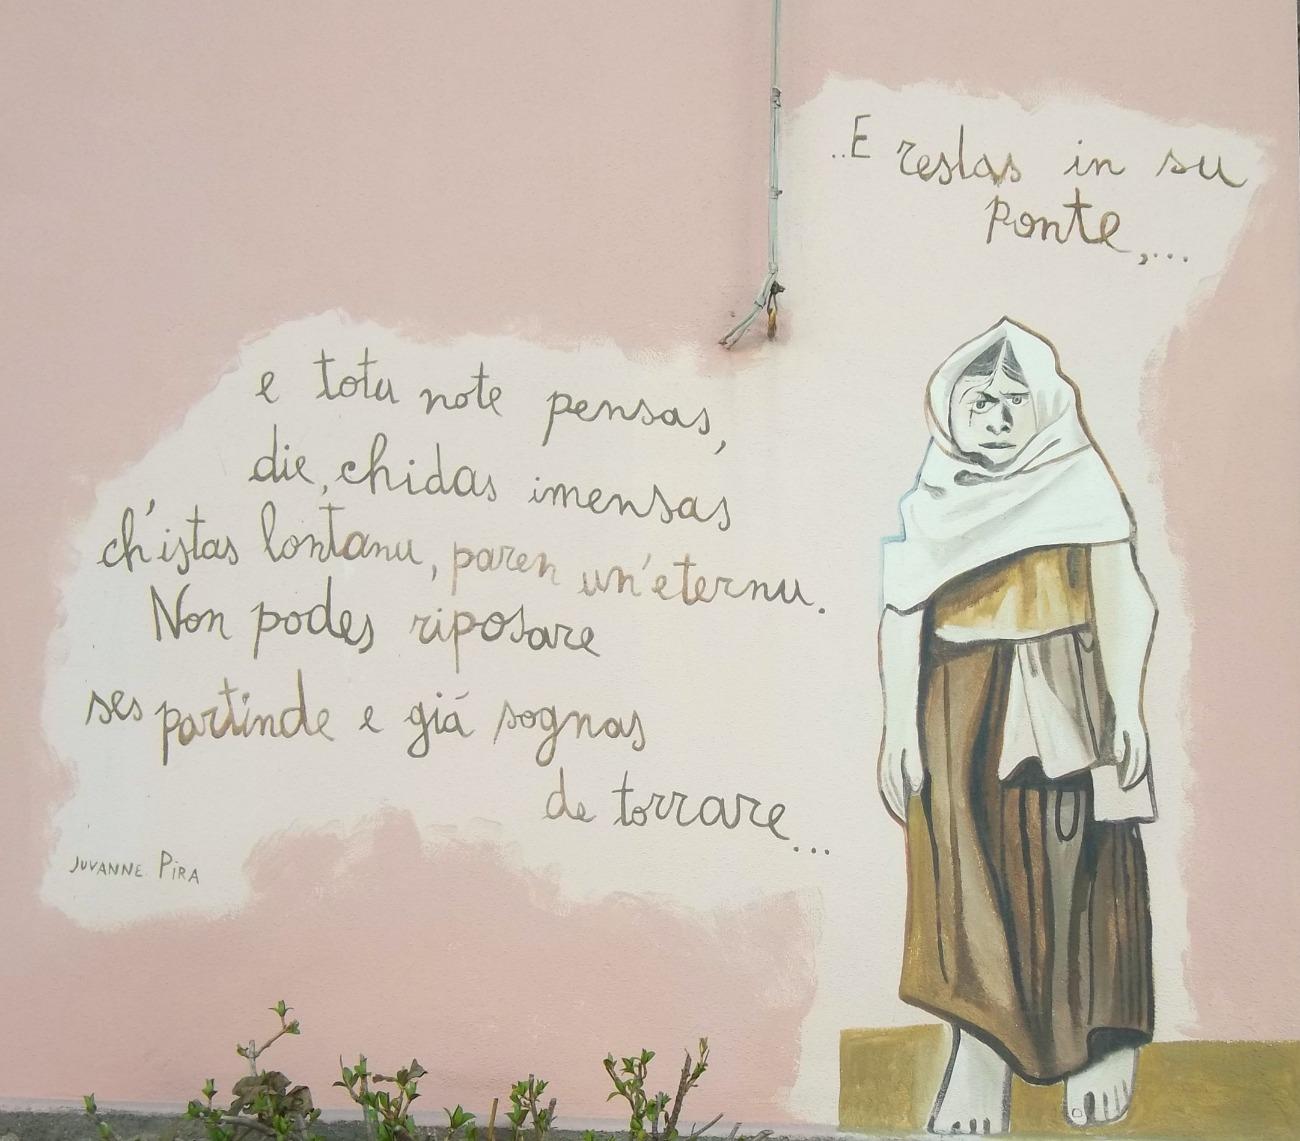 ..E restas in su
ponte,...
e totu note pensas,
die, chidas imensas
ch'istas lontanu, paren un'eternu.
Non podes riposare
ses partinde e giá sognas
de torrare...
JUVANNE PIRA